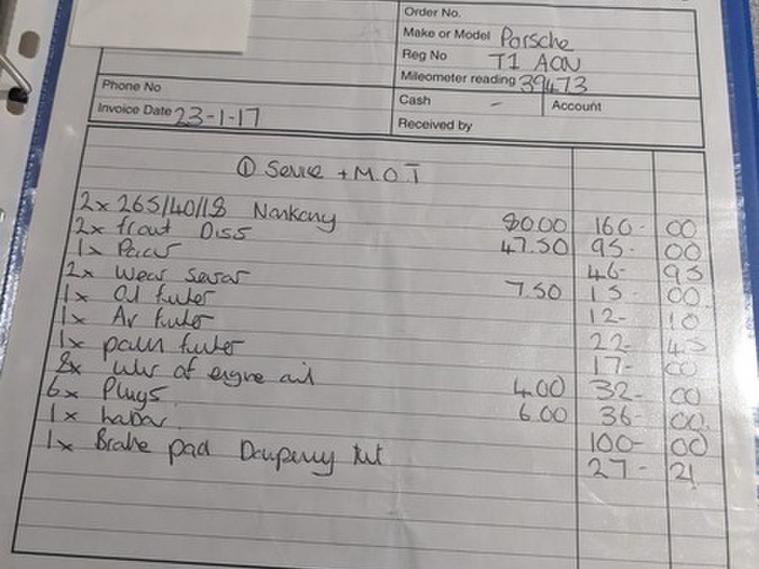 Order No.
Make or Model Porsche
Reg No T1 AON
Mileometer reading 39473
Phone No
Cash - Account
Invoice Date 23-1-17
Received by
① Service + M.O.T
2x 265/40/18 Nankang 80.00 160- 00
2x front Discs 47.50 95- 00
1x Pads 46- 95
2x Wear sensor 7.50 15- 00
1x Oil filter 12- 10
1x Air filter 22- 45
1x pollen filter 17- 00
8x Litrs of engine oil 4.00 32- 00
6x Plugs 6.00 36- 00
1x Labour 100- 00
1x Brake pad Dampening kit 27- 21